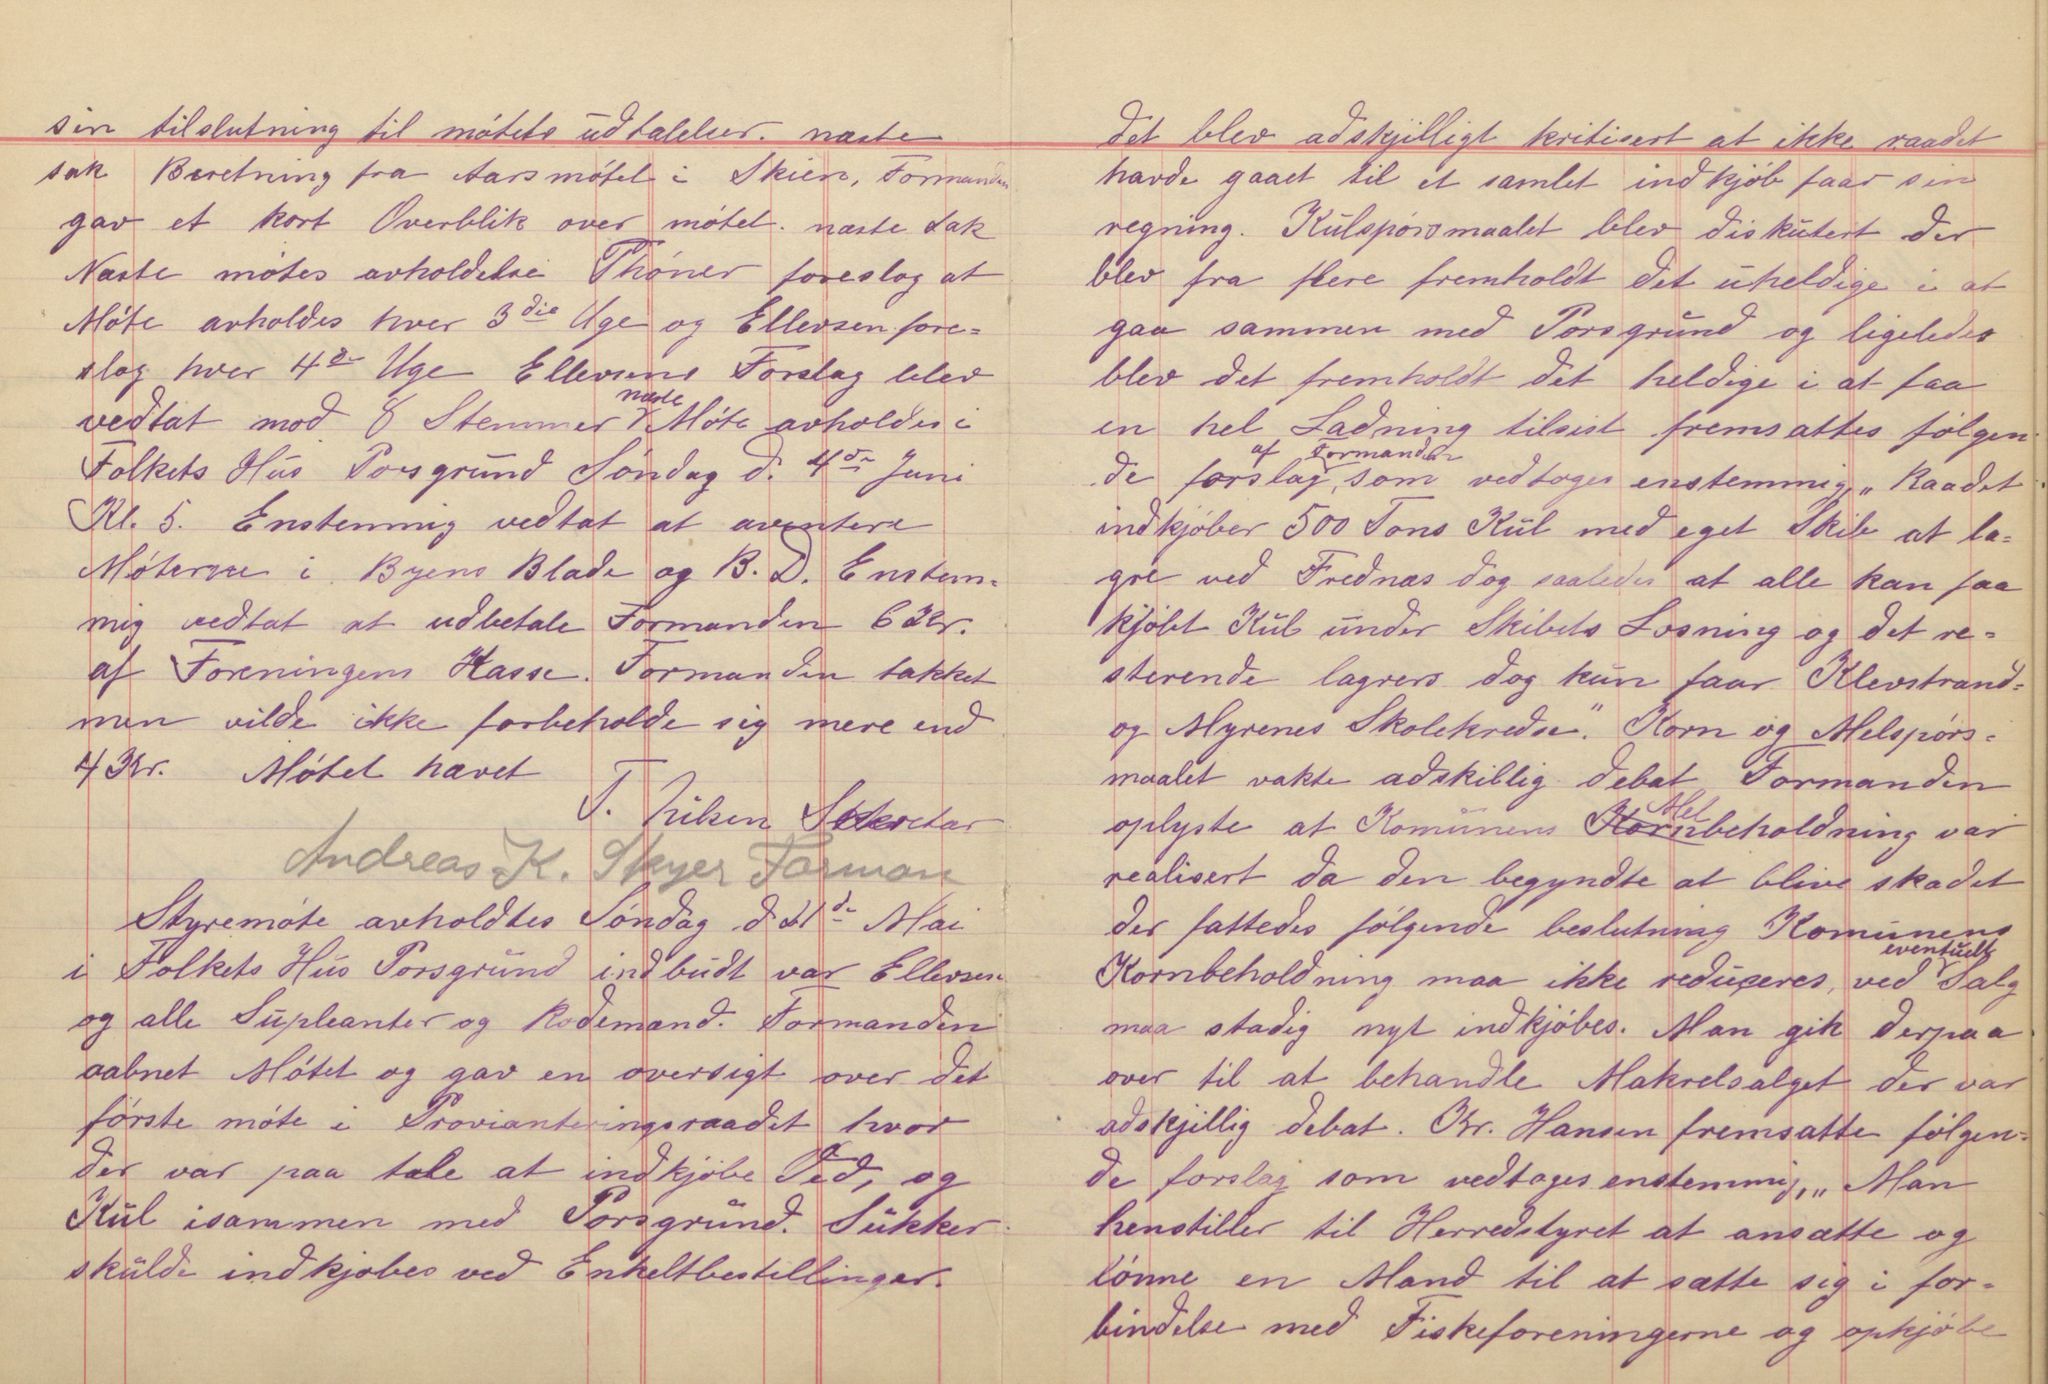 sin tilslutning til mótets udtalelser. næste
sak Beretning fra Aarsmótet i Skien, Formanden
gav et kort Overblik over mótet. næste Sak
Næste mótes avholdelse Thóner foreslog at
Móte avholdes hver 3die Uge og Ellevsen fore=
slog hver 4de Uge Ellevsens Forslag blev
vedtat mod 8 Stemmer næste Móte avholdes i
Folkets Hus Porsgrund Sóndag d. 4de Juni
Kl. 5. Enstemmig vedtat at avertere
Móterne i Byens Blade og B. D. Enstem=
mig vedtat at udbetale Formanden 6 Kr.
af Foreningens Kasse. Formanden takket
men vilde ikke forbeholde sig mere end
4 Kr. Mótet hævet
T. Sekretær
Andreas K. Skyer Forman
Styremóte avholdtes Sóndag d 21de Mai
i Folkets Hus Porsgrund indbudt var Ellevsen
og alle Supleanter og Rodemænd. Formanden
aabnet Mótet og gav en oversigt over det
fórste móte i Provianteringsraadet hvor
der var paa tale at indkjóbe Ved, og
Kul isammen med Porsgrund. Sukker
skulde indkjóbes ved Enkeltbestillinger.
det blev adskjilligt kritisert at ikke raadet
havde gaaet til et samlet indkjób faar sin
regning. Kulspórsmaalet blev diskutert der
blev fra flere fremholdt det uheldige i at
gaa sammen med Porsgrund og ligeledes
blev det fremholdt det heldige i at faa
en hel Ladning tilsist fremsattes fólgen
de forslag af Formanden, som vedtoges enstemmig, „ Raadet
indkjóber 500 Tons Kul med eget Skib at la=
gre ved Frednæs dog saaledes at alle kan faa
kjóbt Kul under Skibets Losning og det re=
sterende lagrers dog kun faar Klevstrand=
og Myrenes Skolekredse". Korn og Melspórs=
maalet vakte adskillig debat Formanden
oplyste at Komunens Korn Mel beholdning var
realisert da den begyndte at blive skadet
der fattedes fólgende beslutning Komunens
Kornbeholdning maa ikke reduceres, ved eventuelt Salg
maa stadig nyt indkjóbes. Man gik derpaa
over til at behandle Makrelsalget der var
adskjillig debat. Kr. Hansen fremsatte fólgen=
de forslag som vedtoges enstemmig, „ Man
henstiller til Herredstyret at ansætte og
lónne en Mand til at sætte sig i for=
bindelse med Fiskeforeningerne og opkjóbe